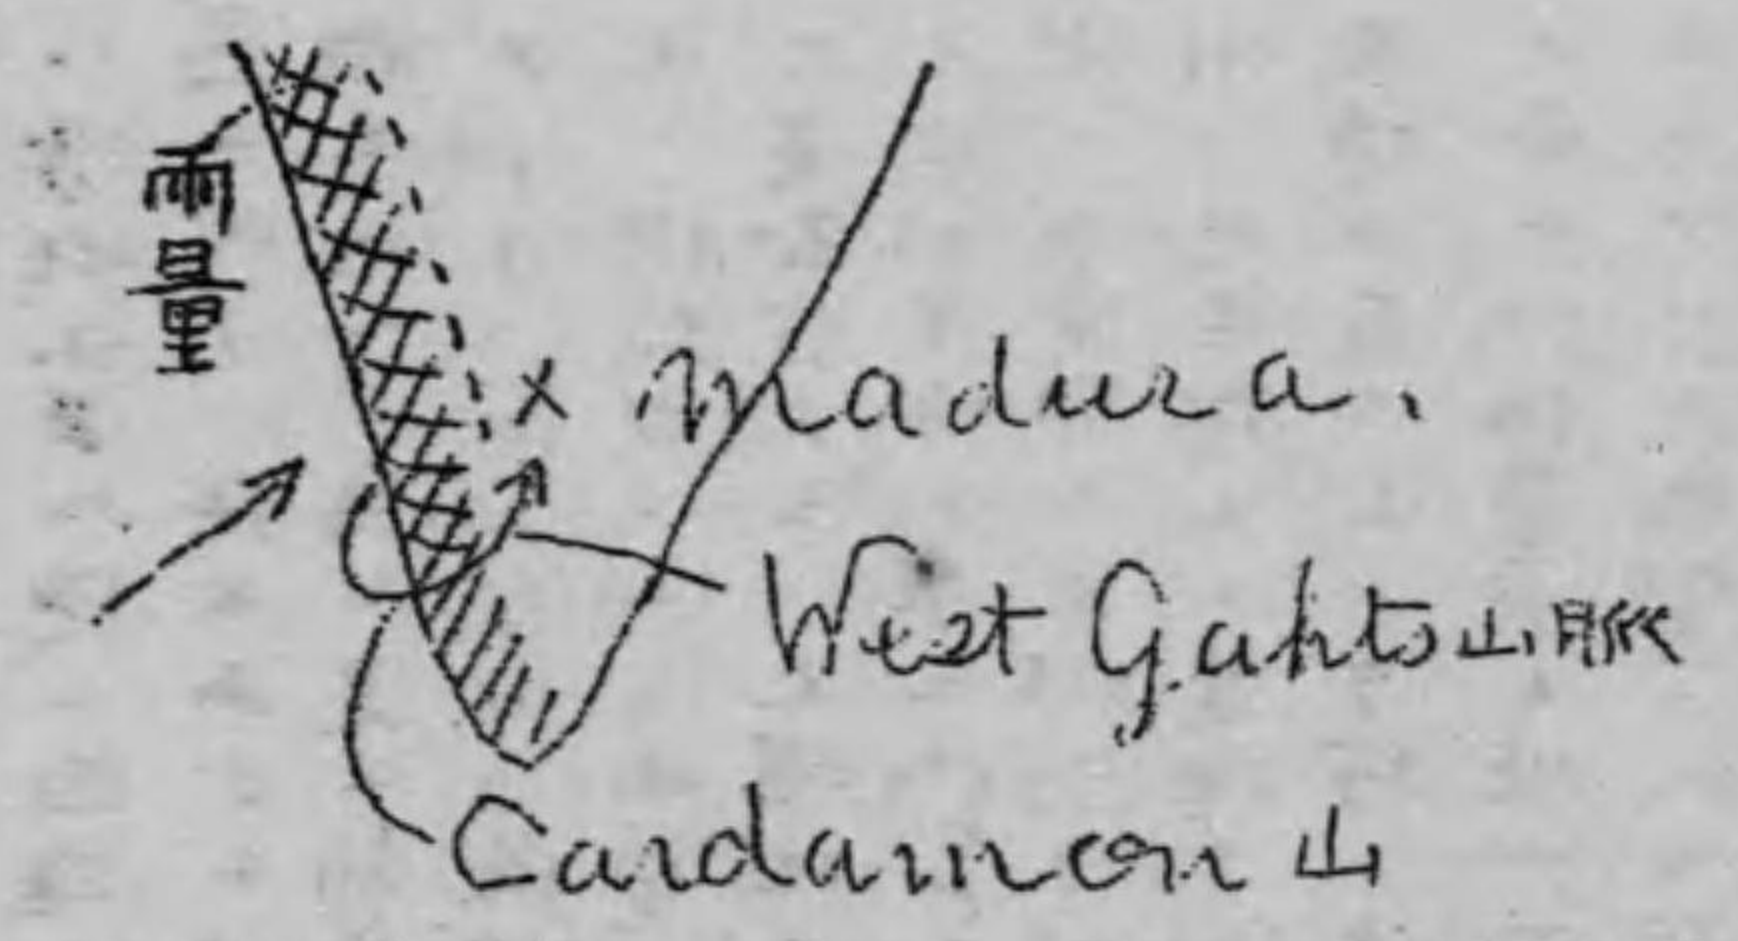 雨量
× Madura.
West Gahts山脈
Cardamon 山